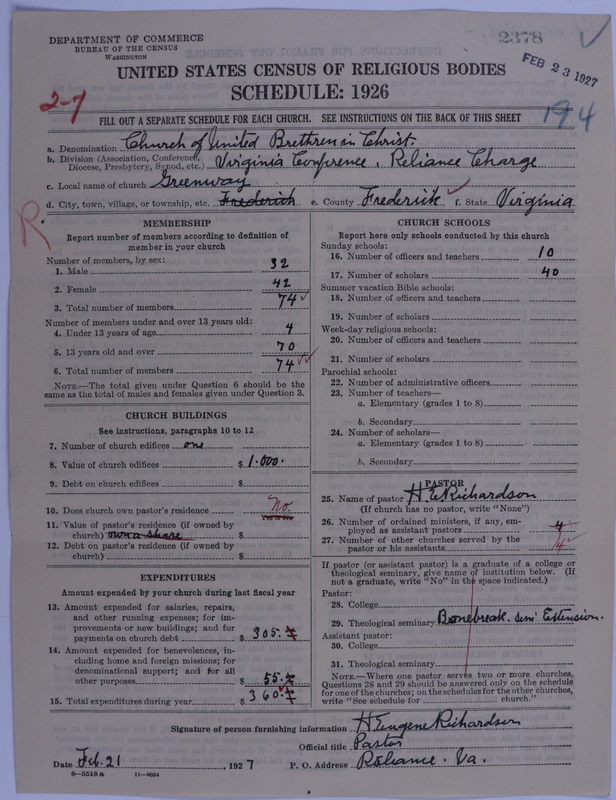 DEPARTMENT OF COMMERCE
BUREAU OF THE CENSUS
WASHINGTON
2378
FEB 23 1927
UNITED STATES CENSUS OF RELIGIOUS BODIES
SCHEDULE: 1926
2-7
194
FILL OUT A SEPARATE SCHEDULE FOR EACH CHURCH. SEE INSTRUCTIONS ON THE BACK OF THIS SHEET
a. Denomination Church of United Brethren in Christ.
b. Division (Association, Conference, Diocese, Presbytery, Synod, etc.) Virginia Conference, Reliance Charge
c. Local name of church Greenway
d. City, town, village, or township, etc. Frederick e. County Frederick f. State Virginia
R
MEMBERSHIP
Report number of members according to definition of
member in your church
Number of members, by sex:
1. Male 32
2. Female 42
3. Total number of members 74
Number of members under and over 13 years old:
4. Under 13 years of age 4
5. 13 years old and over 70
6. Total number of members 74
NOTE.—The total given under Question 6 should be
same as the total of males and females given under Question 3.
CHURCH BUILDINGS
See instructions, paragraphs 10 to 12
7. Number of church edifices one
8. Value of church edifices $ 1.000.
9. Debt on church edifices $
10. Does church own pastor's residence No
11. Value of pastor's residence (if owned by
church) own a share $
12. Debt on pastor's residence (if owned by
church) $
EXPENDITURES
Amount expended by your church during last fiscal year
13. Amount expended for salaries, repairs,
and other running expenses; for im-
provements or new buildings; and for
payments on church debt $ 305.
14. Amount expended for benevolences, in-
cluding home and foreign missions; for
denominational support; and for all
other purposes $ 55.
15. Total expenditures during year $ 360.
CHURCH SCHOOLS
Report here only schools conducted by this church
Sunday schools:
16. Number of officers and teachers 10
17. Number of scholars 40
Summer vacation Bible schools:
18. Number of officers and teachers
19. Number of scholars
Week-day religious schools:
20. Number of officers and teachers
21. Number of scholars
Parochial schools:
22. Number of administrative officers
23. Number of teachers—
a. Elementary (grades 1 to 8)
b. Secondary
24. Number of scholars—
a. Elementary (grades 1 to 8)
b. Secondary
PASTOR
25. Name of pastor H. E. Richardson
(If church has no pastor, write "None")
26. Number of ordained ministers, if any, em-
ployed as assistant pastors 4
27. Number of other churches served by the
pastor or his assistants 4
If pastor (or assistant pastor) is a graduate of a college or
theological seminary, give name of institution below. (If
not a graduate, write "No" in the space indicated.)
Pastor:
28. College
29. Theological seminary Bonebreak. Sem' Extension.
Assistant pastor:
30. College
31. Theological seminary
NOTE.—Where one pastor serves two or more churches,
Questions 28 and 29 should be answered only on the schedule
for one of the churches; on the schedules for the other churches,
write "See schedule for church."
Signature of person furnishing information H Eugene Richardson
Official title Pastor
Date Feb. 21, 1927 P. O. Address Reliance. Va.
8-5518a 11-9054